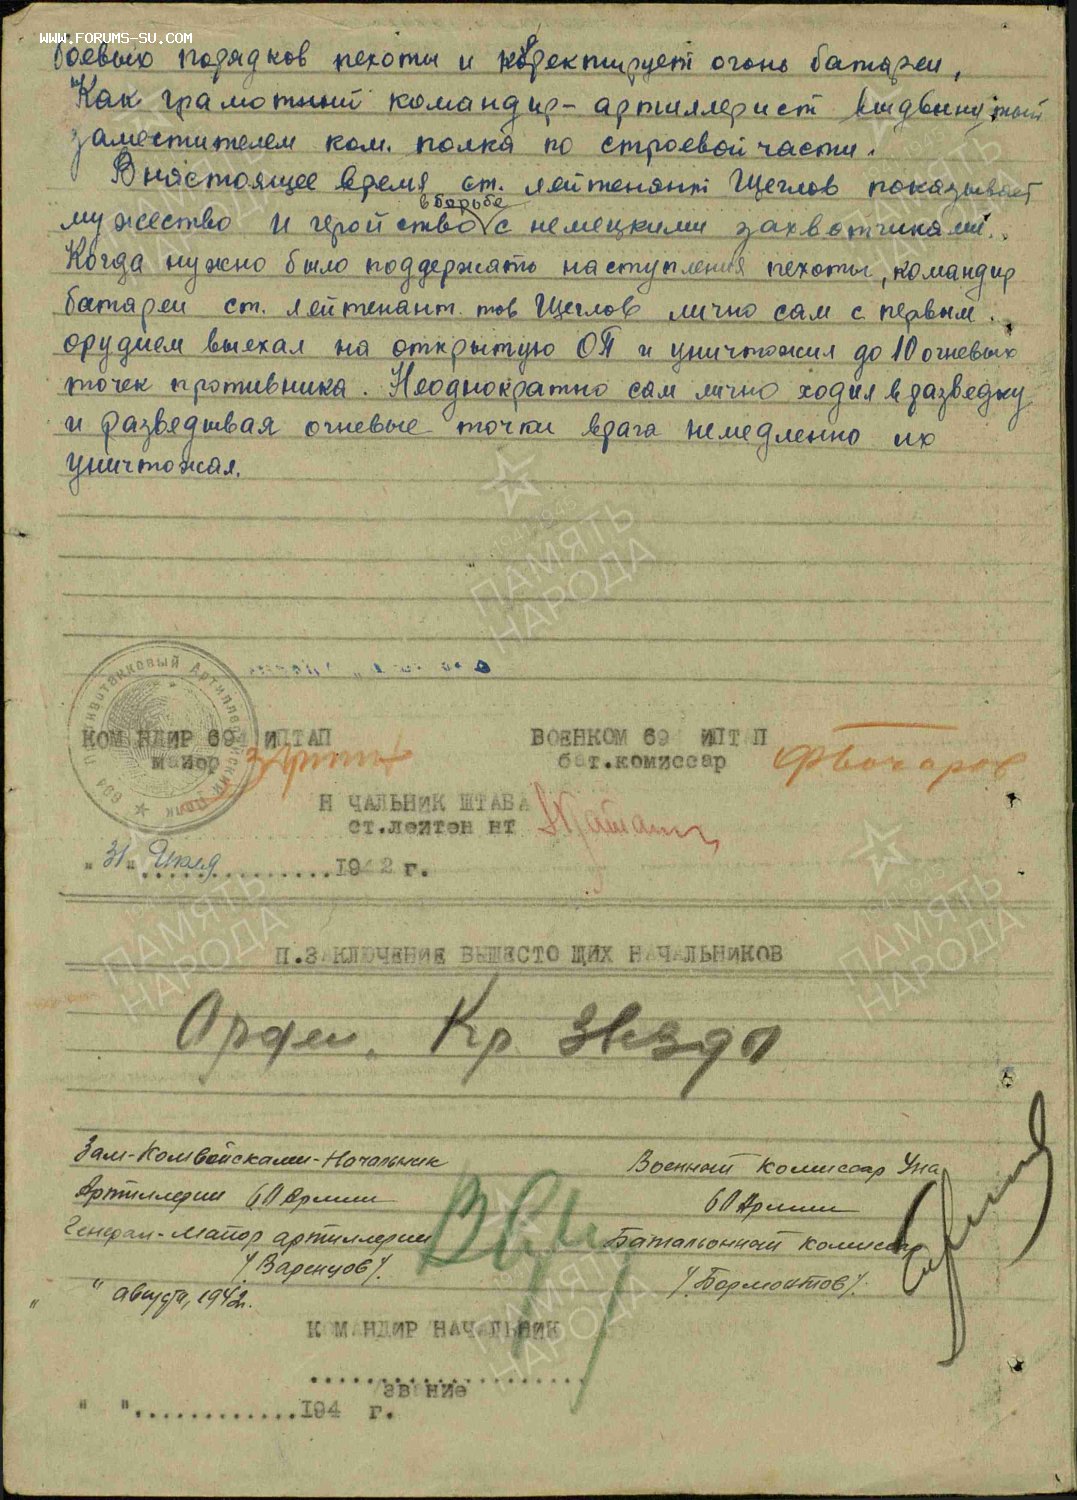 WWW.FORUMS-SU.COM
боевых порядков пехоты и корректирует огонь батареи,
Как грамотный командир-артиллерист выдвинутый
заместителем ком. полка по строевой части.
В настоящее время ст. лейтенант Щеглов показывает
мужество и геройство в борьбе с немецкими захватчиками.
Когда нужно было поддержать наступления пехоты, командир
батареи ст. лейтенант тов Щеглов лично сам с первым
орудием выехал на открытую ОП и уничтожил до 10 огневых
точек противника. Неоднократно сам лично ходил в разведку
и разведывая огневые точки врага немедленно их
уничтожал.
694 Противотанковый Артиллерийский Полк
КОМ НДИР 694 ИПТАП
майор
ВОЕНКОМ 69 ИПТАП
бат.комиссар
Фбочаров
Н ЧАЛЬНИК ШТАБА
ст.лейтен нт
"31" Июля 1942 г.
П.ЗАКЛЮЧЕНИЕ ВЫШЕСТО ЩИХ НАЧАЛЬНИКОВ
Орден. Кр звезды
Зам-Комвойсками-Начальник
Артиллерии 60 Армии
Генерал-Майор артиллерии
/Варенцов/.
" августа, 1942г.
Военный комиссар Уна
60 Армии
Батальонный комиссар
/Бормонтов/.
КОМАНДИР НАЧАЛЬНИК
звание
" "............194 г.
ПАМЯТЬ НАРОДА
1941-1945